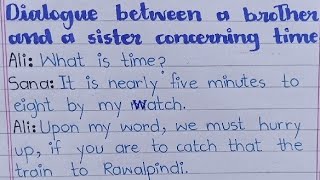 Dialogue between a brother
and a sister concerning time
Ali: What is time?
Sana: It is nearly five minutes to
eight by my watch.
Ali: Upon my word, we must hurry
up, if you are to catch that the
train to Rawalpindi.